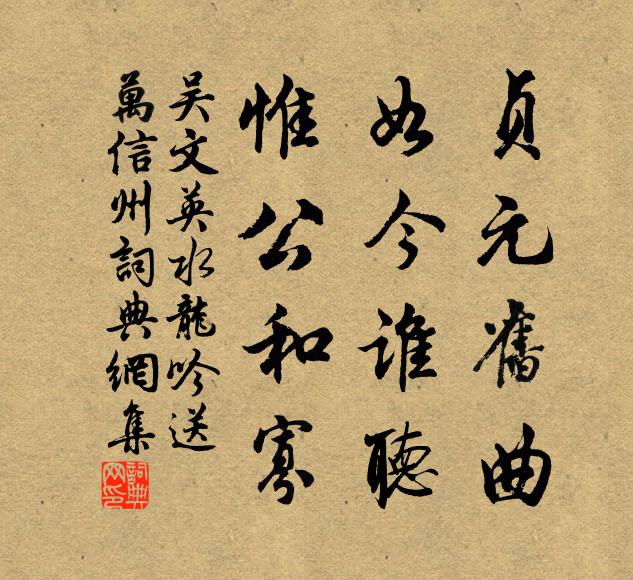 貞元舊曲
如今誰聽
惟公和寡
吳文英水龍吟送
萬信州詞典網集
詞典網印